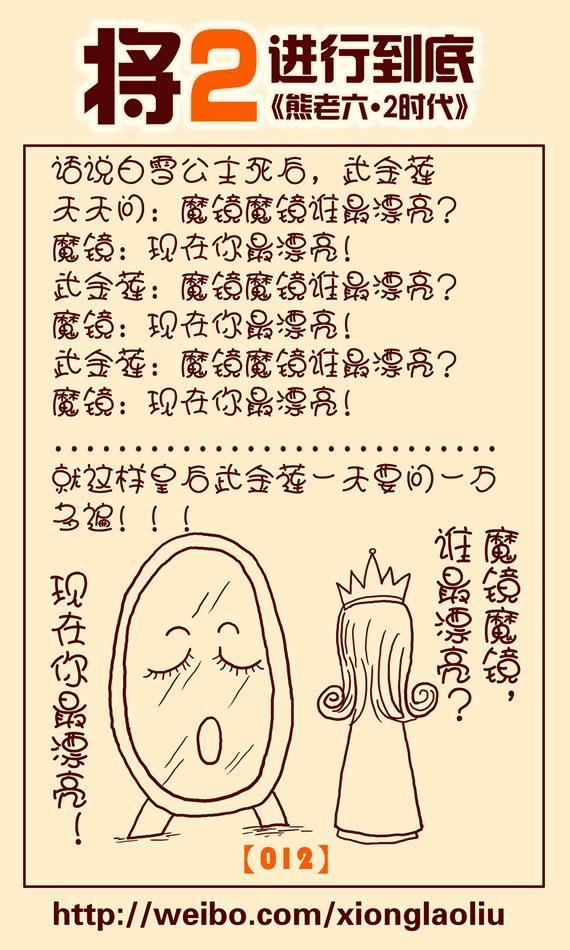 将2进行到底
《熊老六·2时代》
话说白雪公主死后，武金莲
天天问：魔镜魔镜谁最漂亮？
魔镜：现在你最漂亮！
武金莲：魔镜魔镜谁最漂亮？
魔镜：现在你最漂亮！
武金莲：魔镜魔镜谁最漂亮？
魔镜：现在你最漂亮！
................................
就这样皇后武金莲一天要问一万
多遍！！！
魔镜魔镜，
谁最漂亮？
现在你最漂亮！
【012】
http://weibo.com/xionglaoliu